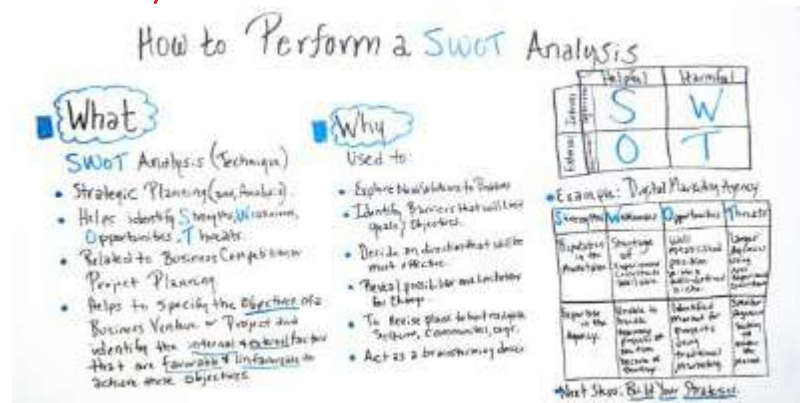 How to Perform a SWOT Analysis
What
SWOT Analysis (Technique)
Strategic Planning
Helps identify Strengths, Weaknesses,
Opportunities, Threats.
Related to Business Competition
Project Planning
Helps to Specify the Objectives of a
Business Venture or Project and
identify the internal & external factors
that are favorable & Unfavorable to
achieve those objectives
Why
Used to:
Explore New Solutions to Problems
Identify Barriers that will limit
goals/Objectives.
Decide on direction that will be
most effective
Reveal possibilities and limitations
for Change
To Revise plans to best navigate
Systems, Communities, orgs.
Act as a brainstorming device
Helpful Harmful
Internal S W
External O T
Example: Digital Marketing Agency
Strengths Weaknesses Opportunities Threats
Reputation
in the
Marketplace
Shortage
of
Consultants
Well
established
position
niche
Larger
Agencies
Expertise
in the
Agency
Unable to
Identified
market for
using
traditional
marketing
Smaller
Agencies
Next Steps: Build Your Strategies